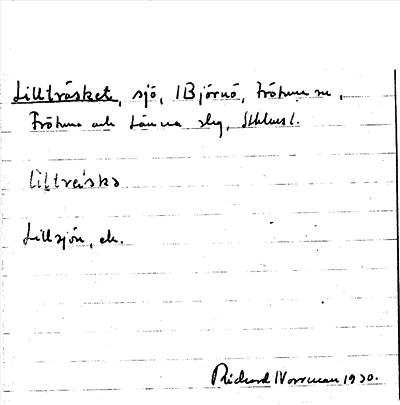 Lillträsket, sjö, 1 Björnö, Frötuna sn,
Frötuna och Länna slg, Sthlms l.
lıltrɛ̇skə
Lillsjön, ek.
Richard Norrman 1930.